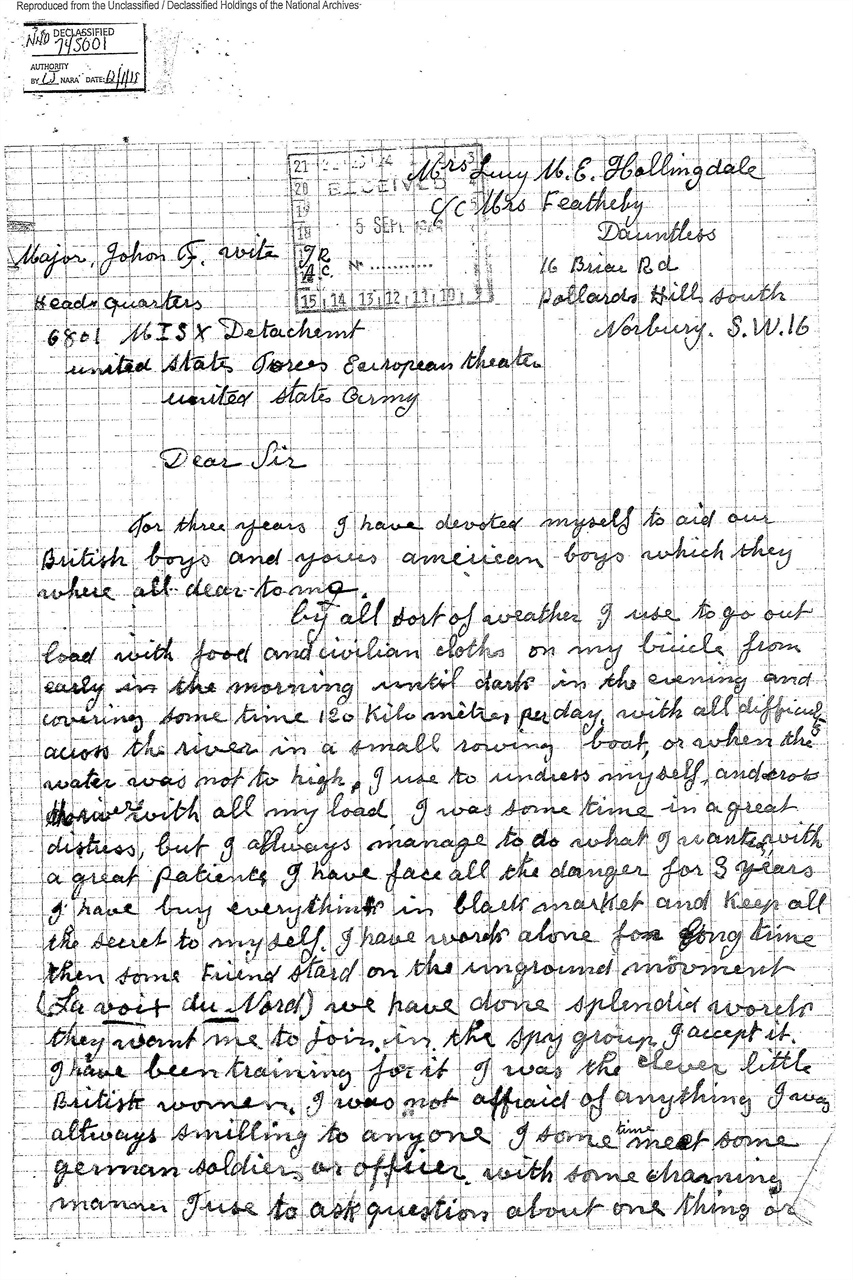 Reproduced from the Unclassified / Declassified Holdings of the National Archives
DECLASSIFIED
NND 745001
AUTHORITY
BY NARA DATE:
21 24 2 3
20 RECEIVED 4
19 5
18 5 SEPT
Nº ............
15 14 13 12 11 10 9
Mrs Lucy M. E. Hollingdale
c/c Mrs Featheby
Dauntless
16 Briar Rd
Pollards Hill south
Norbury. S.W.16
Major, Johon F. wite JR
A.C.
Head Quarters
6801 MISX Detachemt
united States Forces European theater
united states Army
Dear Sir
For three years I have devoted myself to aid our
British boys and yours american boys which they
where all dear to me.
by all sort of weather I use to go out
load with food and civilian cloths on my bicicle from
early in the morning until dark in the evening and
covering some time 120 Kilo mètres per day, with all difficults
across the river in a small rowing boat, or when the
water was not to high, I use to undress myself, and cross
the river with all my load, I was some time in a great
distress, but I allways manage to do what I wanted, with
a great patients, I have face all the danger for 3 years
I have buy everything in black market and Keep all
the secret to myself. I have work alone for long time
then some Friend stard on the unground movment
(La voix du Nord) we have done splendid work
they want me to join in the spy group, I accept it.
I have been training for it I was the clever little
British women. I was not affraid of anything I was
altways smilling to anyone I some time meet some
german soldiers or officer, with some charming
manner I use to ask question about one thing or